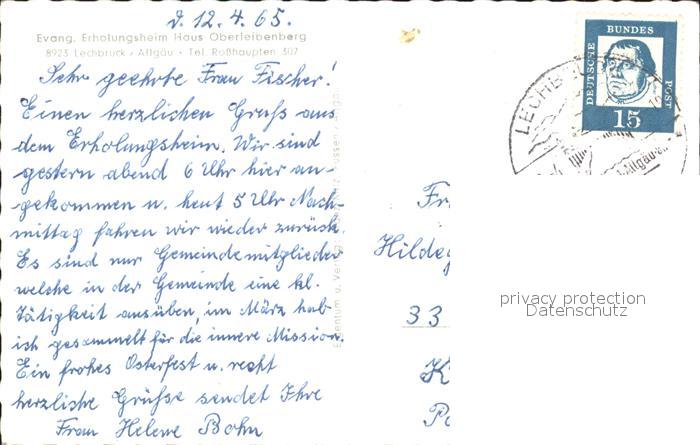 d. 12.4.65.
Evang. Erholungsheim Haus Oberleibenberg
8923 Lechbruck · Allgäu · Tel. Roßhaupten 307
Sehr geehrte Frau Fischer!
Einen herzlichen Gruß aus
dem Erholungsheim. Wir sind
gestern abend 6 Uhr hier an-
gekommen u. heut 5 Uhr Nach-
mittag fahren wir wieder zurück.
Es sind nur Gemeindemitglieder
welche in der Gemeinde eine kl.
Tätigkeit ausüben, im März hab
ich gesammelt für die innere Mission.
Ein frohes Osterfest u. recht
herzliche Grüße sendet Ihre
Frau Helene Bohn
Eigentum u. Verlag
DEUTSCHE
BUNDES
POST
15
LECHB
Fr
Hildeg
33
K
privacy protection
Datenschutz